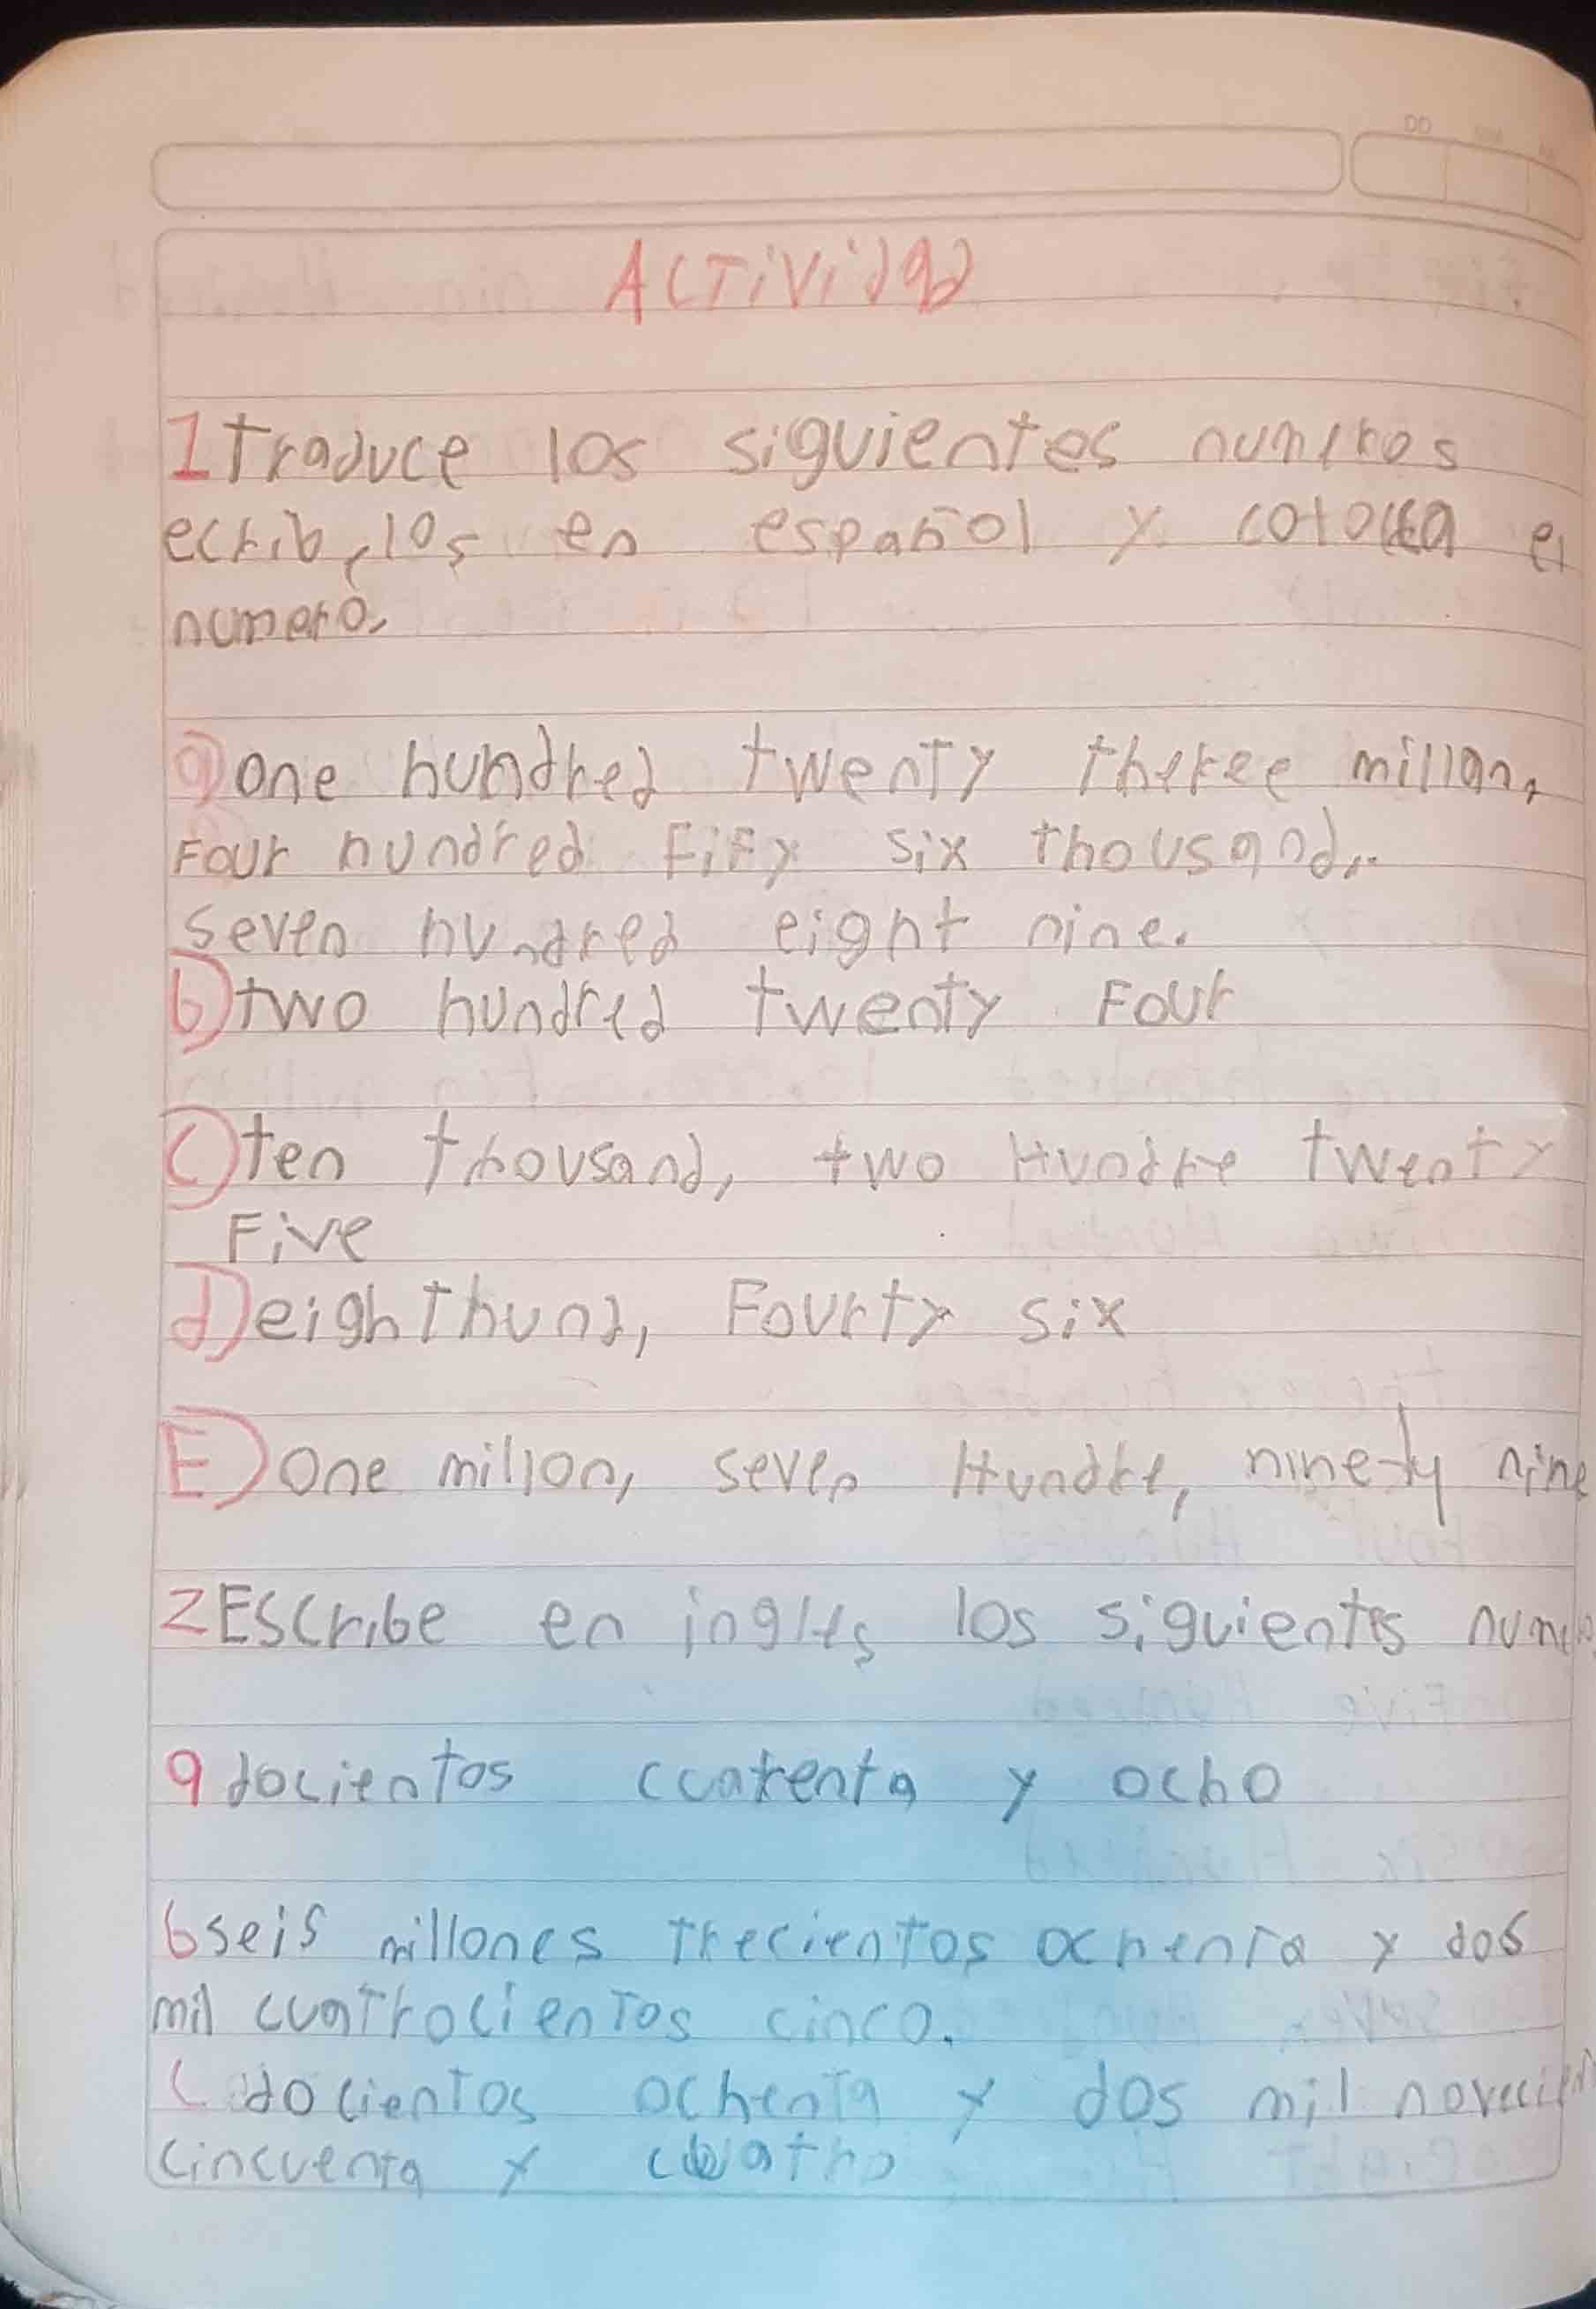 DD
Actividad
1 Traduce los siguientes numeros
ecribelos en español y colocca el
numero.
a) one hundred twenty thereee millon,
Four hundred FiFy six thousand,
seven hundred eight nine.
b) two hundred twenty Four
c) ten thousand, two Hundre twenty
Five
d) eighThund, Fourty six
E) One millon, seven Hundre, ninety nine
2 Escribe en ingles los siguientes
a docientos cuatenta y ocho
b seis millones trecientos ochenta y dos
mil cuatrocientos cinco.
c docientos ochenta y dos mil
cincuenta y cuatro